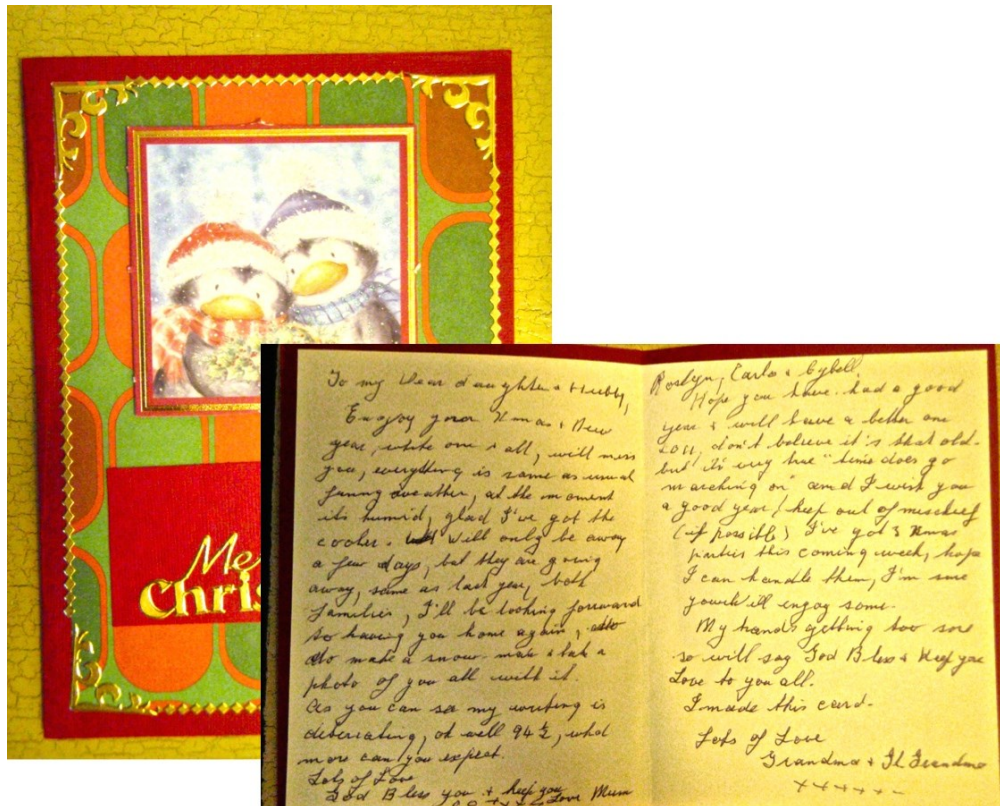 Me
Chris
To my dear daughter & Hubby,
Enjoy your Xmas & New
year, white one & all, will miss
you, everything is same as usual
funny weather, at the moment
its humid, glad I've got the
cooler. Will only be away
a few days, but they are going
away, same as last year, both
families, I'll be looking forward
to having you home again,
do make a snow-man & take a
photo of you all with it.
As you can see my writing is
deteriating, oh well 94½, what
more can you expect.
Lots of Love
God Bless you & keep you
Love Mum
Roslyn, Carlo & Cybell,
Hope you have had a good
year & will have a better one
2011, don't believe it's that old.
but it's very true "time does go
marching on" and I wish you
a good year, keep out of mischief
(if possible) I've got 3 Xmas
parties this coming week, hope
I can handle them, I'm sure
enjoy some.
My hands getting too sore
so will say God Bless & Keep you
Love to you all.
I made this card.
Lots of Love
Grandma & Gt Grandma
x x x x x